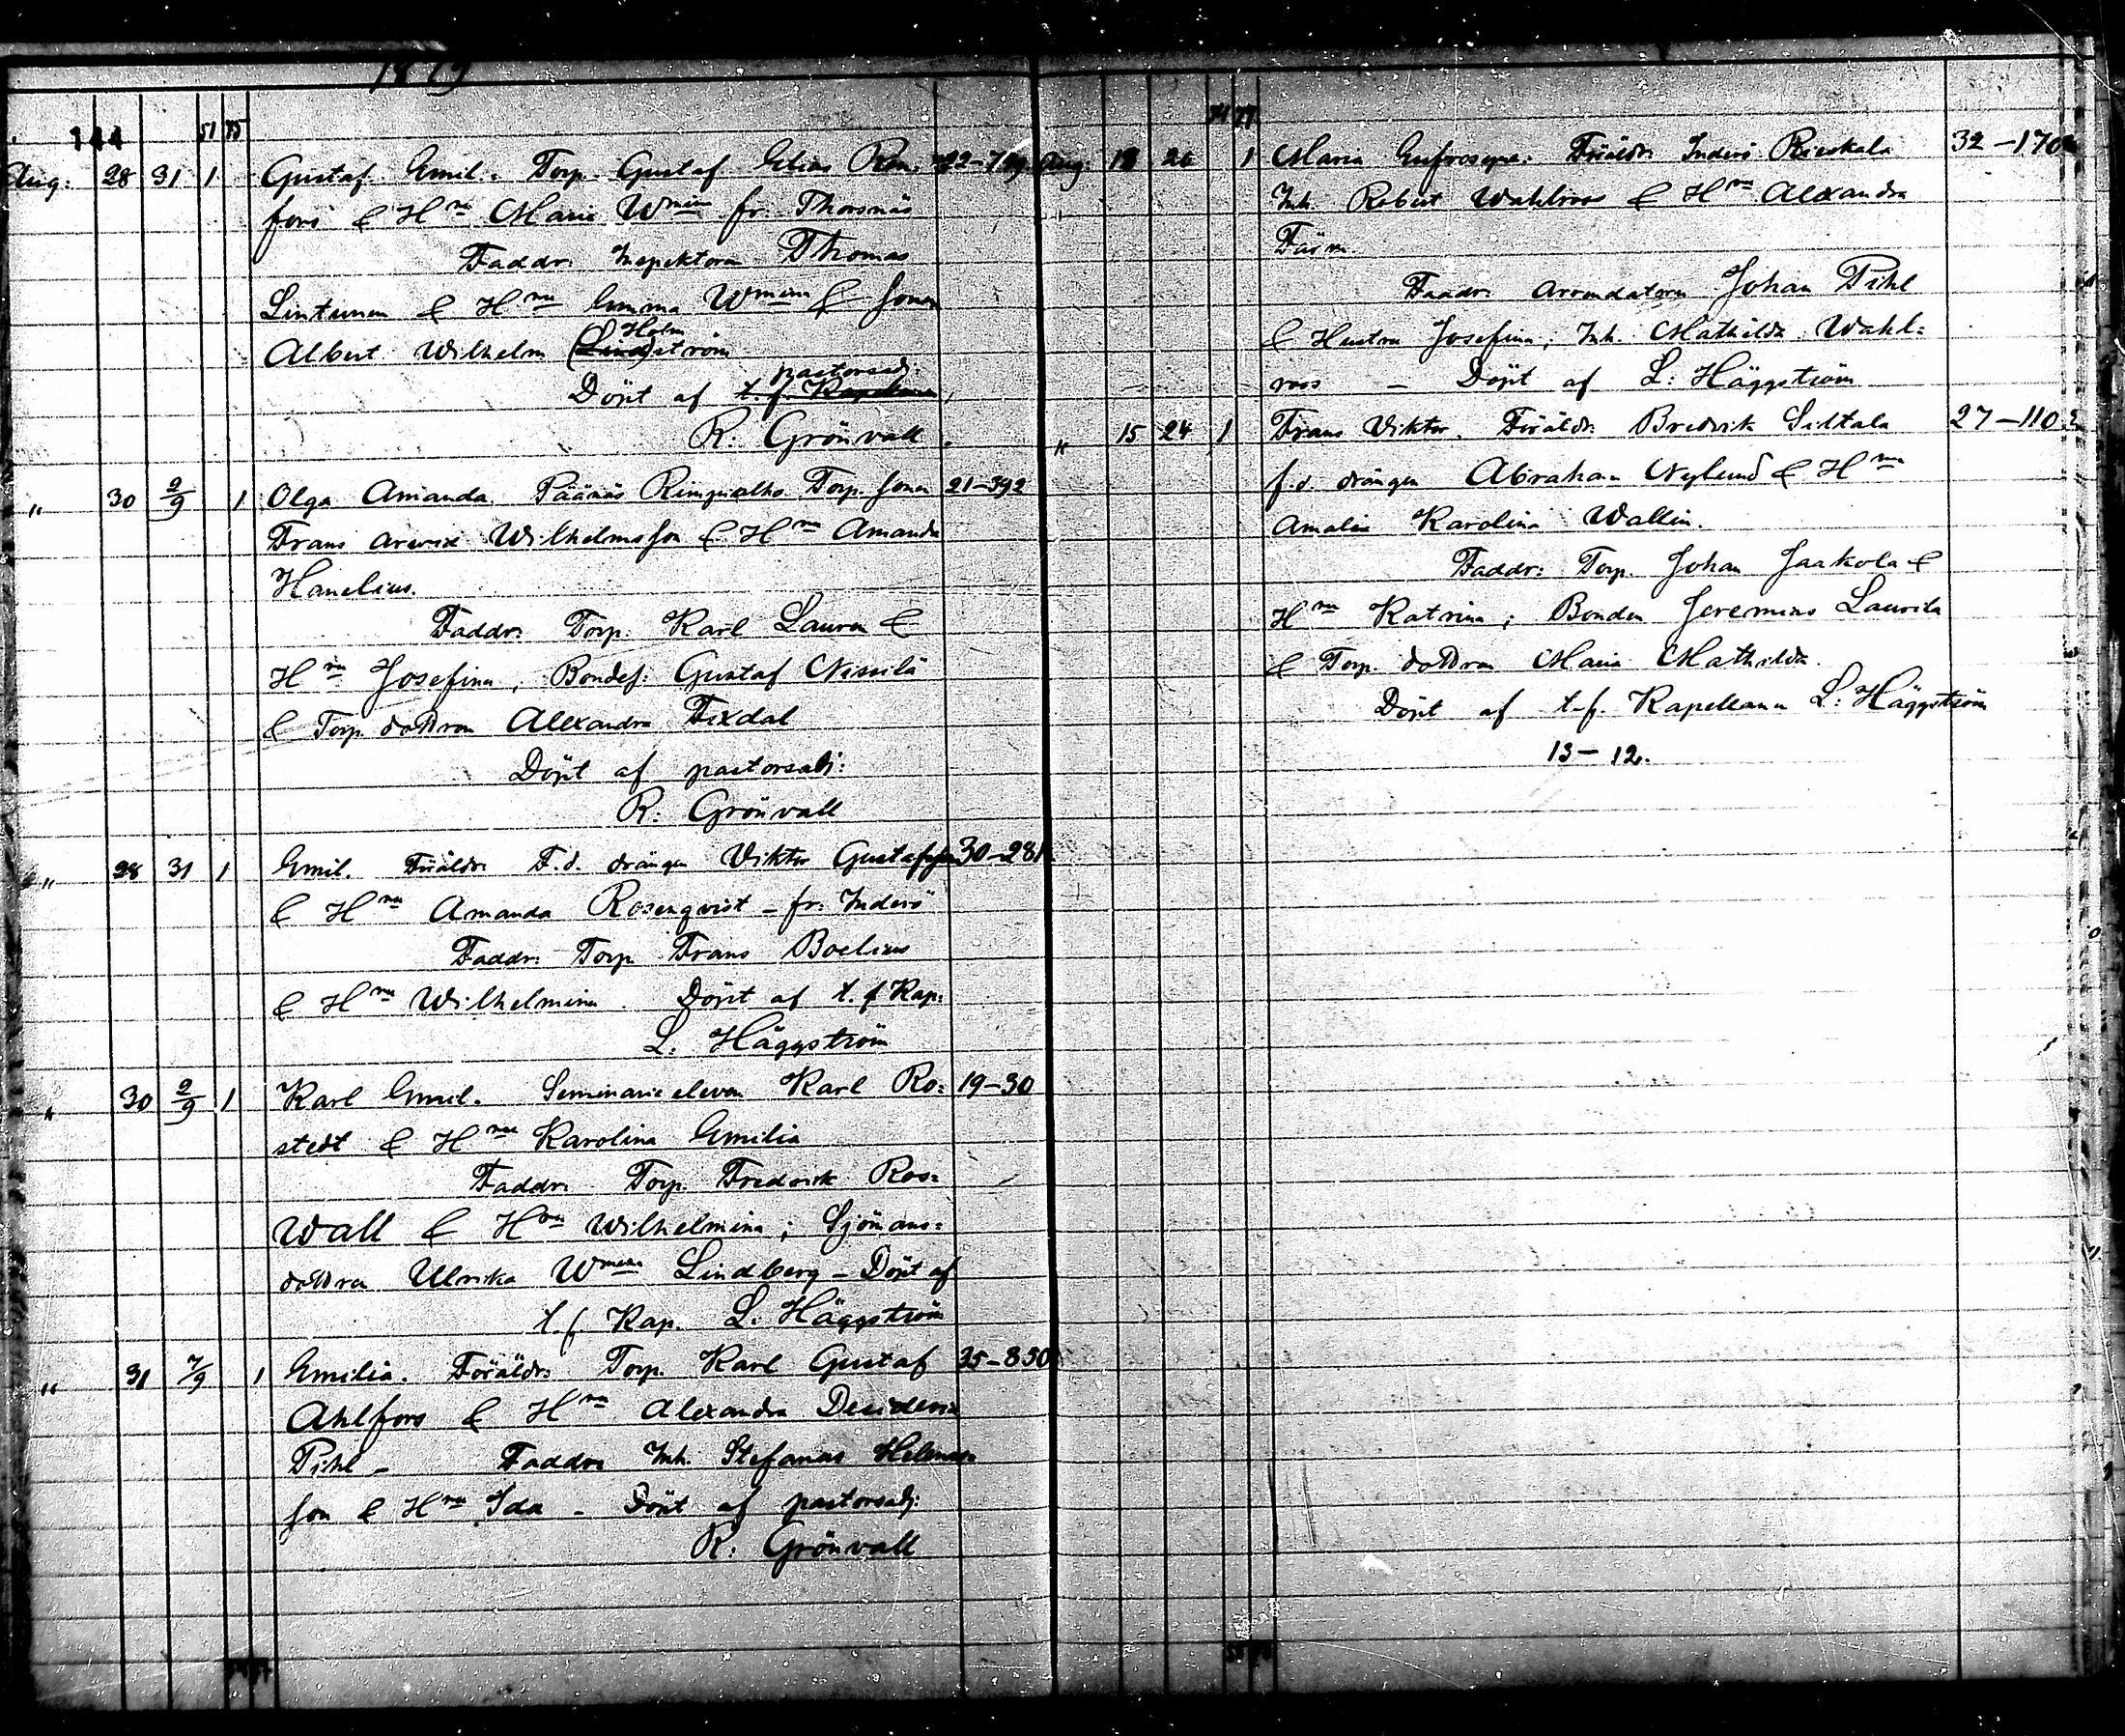 1879
144 51 75
Aug. 28 31 1 Gustaf Emil. Torp. Gustaf Elias Ren= 22-729.
fors & H:ru Maria W:mina fr. Thorsnäs
Faddr: Inspektorn Thomas
Lintunen & H:ru Emma W:mina & sonen
Holm
Albert Wilhelm (Lind)ström
pastorsadj:
Döpt af t.f. Kapellanen
R: Grönvall
" 30 2/9 1 Olga Amanda. Päänäs Torp. sonen 21-392
Frans Arvid Wilhelmsson & H:ru Amanda
Hanelius.
Faddr: Torp. Karl Lauren &
H:ru Josefina, Bondes: Gustaf Nissilä
& Torp. dottron Alexandra Fixdal
Döpt af pastorsadj:
R: Grönvall
" 28 31 1 Emil. Föräldr: F.d. drängen Viktor Gustafsson 30-281
& H:ru Amanda Rosenqvist - fr: Inderö
Faddr: Torp. Frans Boelius
& H:ru Wilhelmina. Döpt af t.f. Kap:
L: Häggström
" 30 2/9 1 Karl Emil. Seminarie eleven Karl Ro= 19-30
stedt & H:ru Karolina Emilia
Faddr: Torp. Fredrik Ros=
wall & H:ru Wilhelmina; Sjömans=
dottren Ulrika W:mina Lindberg - Döpt af
t.f. Kap. L: Häggström
" 31 7/9 1 Emilia. Föräldr: Torp. Karl Gustaf 35-850
Ahlfors & H:ru Alexandra Desideria
Pihl - Faddr: Inh. Stefanus Helenus=
son & H:ru Ida - Döpt af pastorsadj:
R: Grönvall
74 77
Aug. 26 1 Maria Eufrosyne. Föräldr: Inderö Rieskala 32-170
Inh. Robert Wahlroos & H:ru Alexandra
Färm.
Faddr: Arrendatorn Johan Pihl
& Hustru Josefina; Inh. Mathilda Wahl=
roos - Döpt af L: Häggström
" 15 24 1 Frans Viktor. Föräldr: Bredvik Siltala 27-110
f.d. drängen Abraham Nylund & H:ru
Amalia Karolina Wallin.
Faddr: Torp. Johan Jaakola &
H:ru Katrina; Bonden Jeremias Laurila
& Torp. dottron Maria Mathilda.
Döpt af t.f. Kapellanen L: Häggström
13-12.